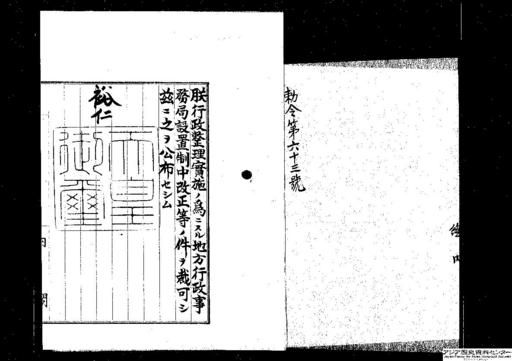 勅令第六十三號
朕行政整理實施ノ爲ニスル地方行政事
務局設置制中改正等ノ件ヲ裁可シ
茲ニ之ヲ公布セシム
裕仁
天皇
御璽
内
内閣
アジア歴史資料センター